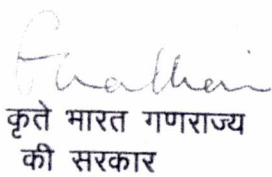 कृते भारत गणराज्य
की सरकार